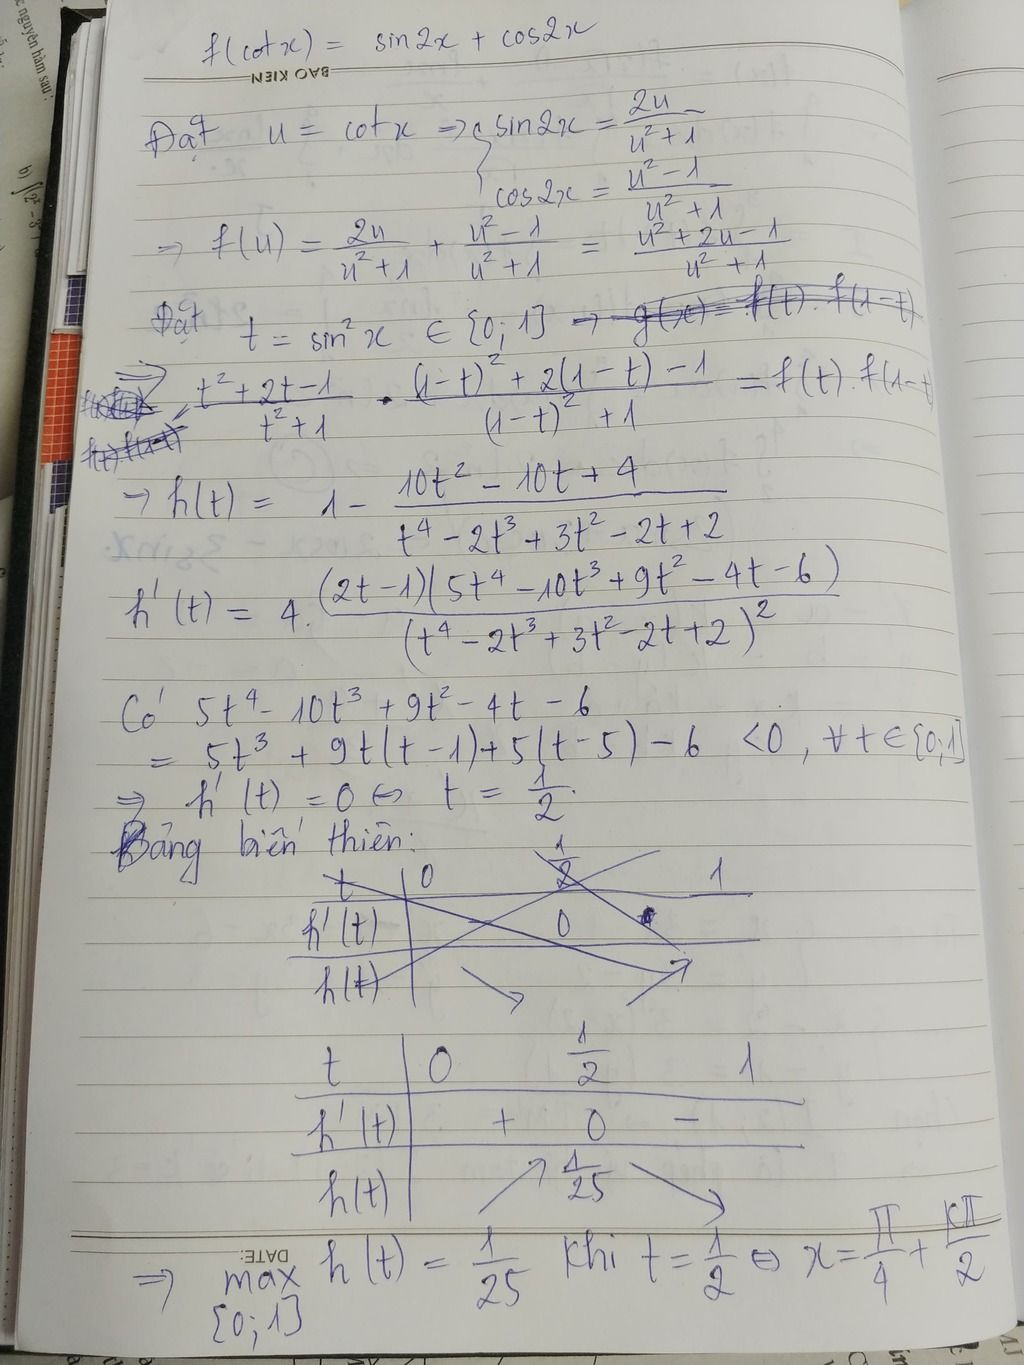 f(cotx) = sin2x + cos2x
BAO KIEN
Đặt u = cotx => { sin2x = 2u / u² + 1
cos2x = u² - 1 / u² + 1
=> f(u) = 2u / u² + 1 + u² - 1 / u² + 1 = u² + 2u - 1 / u² + 1
Đặt t = sin²x ∈ [0; 1] → g(x) = f(t) . f(1-t)
=> t² + 2t - 1 / t² + 1 . (1-t)² + 2(1-t) - 1 / (1-t)² + 1 = f(t) . f(1-t)
f(t).f(1-t)
→ h(t) = 1 - 10t² - 10t + 4 / t⁴ - 2t³ + 3t² - 2t + 2
h'(t) = 4. (2t-1)(5t⁴ - 10t³ + 9t² - 4t - 6) / (t⁴ - 2t³ + 3t² - 2t + 2)²
Có 5t⁴ - 10t³ + 9t² - 4t - 6
= 5t³ + 9t(t-1) + 5(t-5) - 6 <0, ∀t∈[0;1]
=> h'(t) = 0 ⇔ t = 1/2.
Bảng biến thiên:
t 0 1/2 1
h'(t) - 0
h(t) ↘ ↗
t 0 1/2 1
h'(t) + 0 -
h(t) ↗ 1/25 ↘
DATE:
=> max h(t) = 1/25 khi t = 1/2 ⇔ x = π/4 + kπ/2
[0; 1]
nguyên hàm sau:
b)